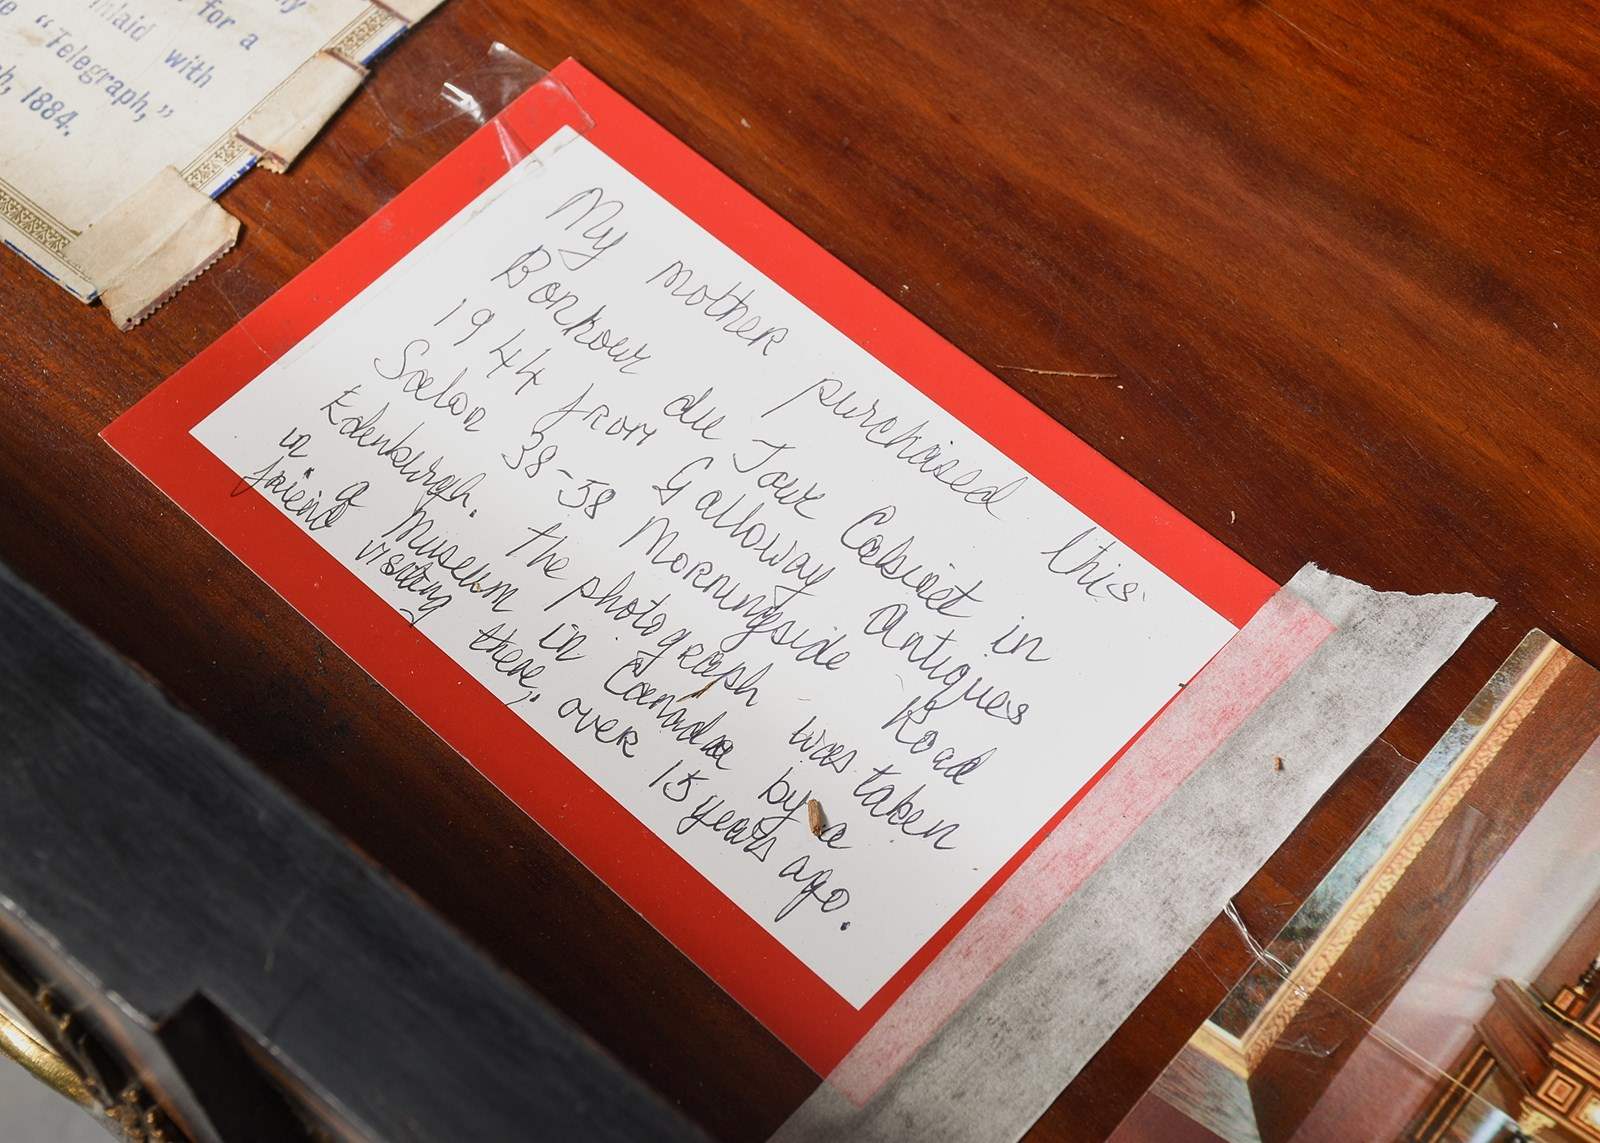 for a
inlaid with
"Telegraph,"
1884.
My mother purchased this
Bonhour du Jour Cabinet in
1944 from Galloway Antiques
Salon 38-58 Morningside Road
Edenburgh. The photograph was taken
in a Museum in Canada by a
friend visiting there, over 15 years ago.